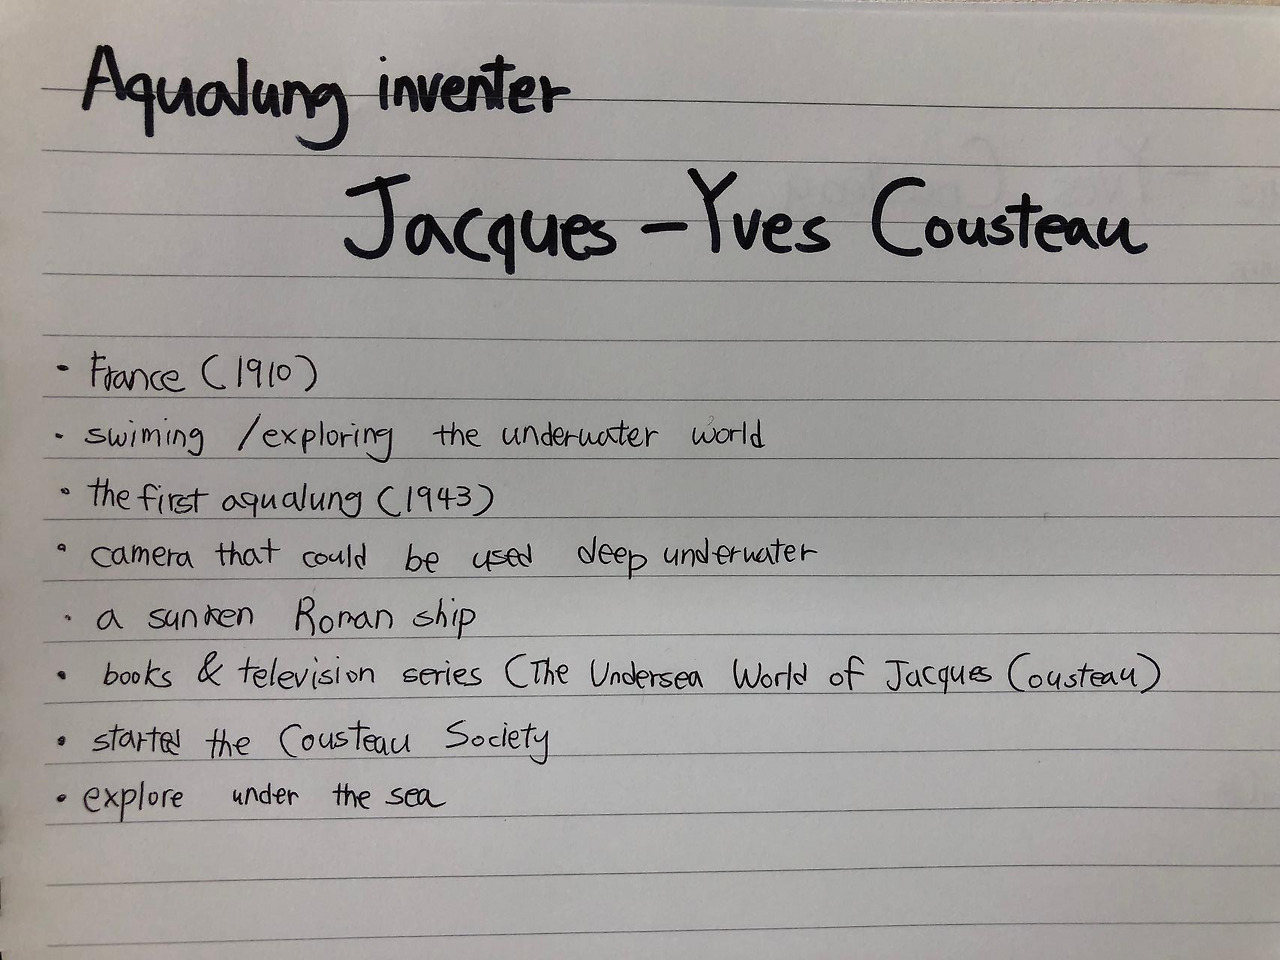 Aqualung inventer
Jacques-Yves Cousteau
· France (1910)
· swiming /exploring the underwater world
· the first aqualung (1943)
· camera that could be used deep underwater
· a sunken Roman ship
· books & television series (The Undersea World of Jacques Cousteau)
· started the Cousteau Society
· explore under the sea